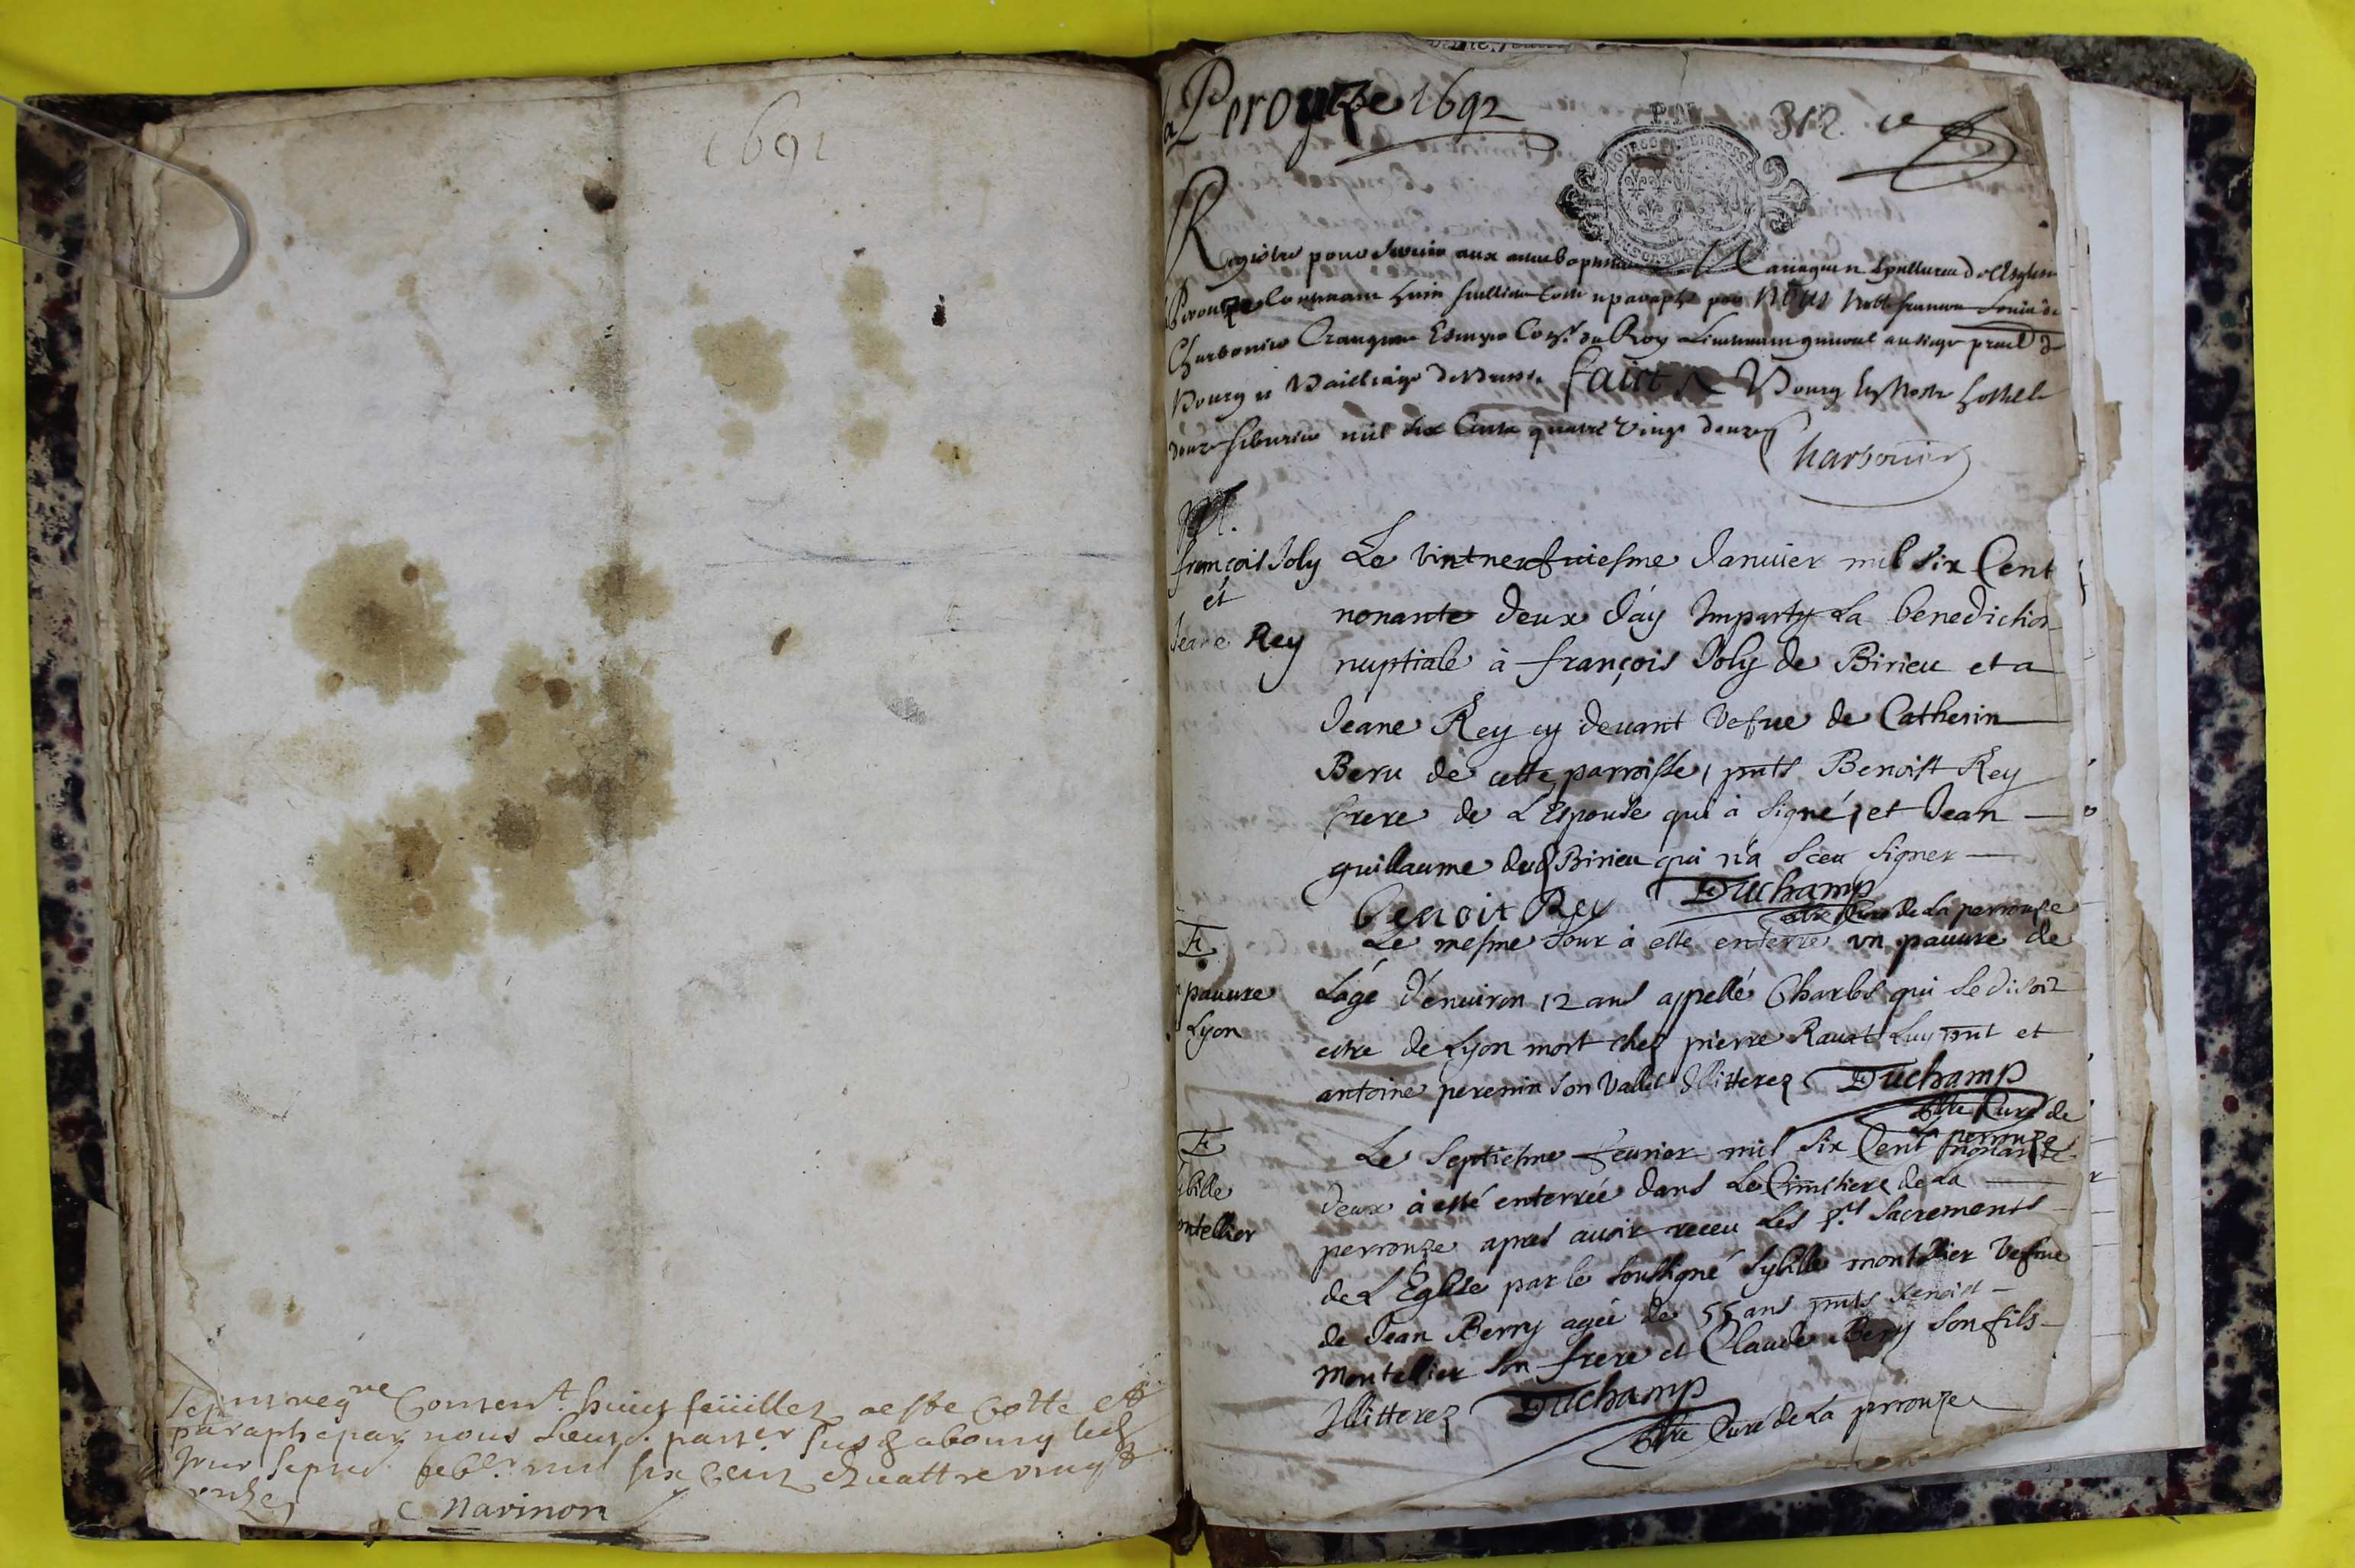 1691
Le pnt regre Content. huict feüilles a esté Cotté et
paraphé par nous Lieut. parter susd. a bourg led.
Jour septie. febr. mil six Cent Quattre vingt
onze
Marinon
La Perouze 1692
312. e
Registre pour servir aux aux baptesmes Mariages et sepultures de l'Esglise
Perouze Contenant huict feullietz Cotté et paraphé par NOUS Noble françois Louis de
Charbonier Crangeac Escuyer Consr. du Roy Lieutenant general au siege praesl de
Bourg et Bailliage de Bresse faict a Bourg En Nostre hostel le
douze feburier mil six Cents quatre vingt douze
Charbonier
M.
françois Joly
et
Jeane Rey
Le vintneufuiesme Januier mil six Cent
nonante deux J'ay Imparty La benediction
nuptiale à françois Joly de Birieu et a
Jeane Rey cy deuant vefue de Catherin
Beru de cette parroisse, pnts Benoist Rey
frere de L'Espouse qui à signé, et Jean
guillaume dud Birieu qui n'a sceu signer
Benoit Rey Duchamp
ptre Curé de La perrouze
E
pauure
Lyon
Le mesme Jour à esté enterré un pauure de
L'agé d'enuiron 12 ans appellé Charles qui se disoit
estre de Lyon mort chez pierre Rauat Luy pnt et
antoine perenin son vallet Illitterez Duchamp
ptre Curé de
La perrouze
E
ybille
ontellier
Le Septiesme feurier mil six Cent nonante
deux à esté enterrée dans Le Cimetiere de La
perrouze apres auoir receu Les Sts Sacrements
de L'Eglise par le soussigné Sybille montellier vefue
de Jean Berry agée de 55 ans pnts Benoist
Montellier son frere et Claude Bery son fils
Illitterez Duchamp
ptre Curé de La perrouze